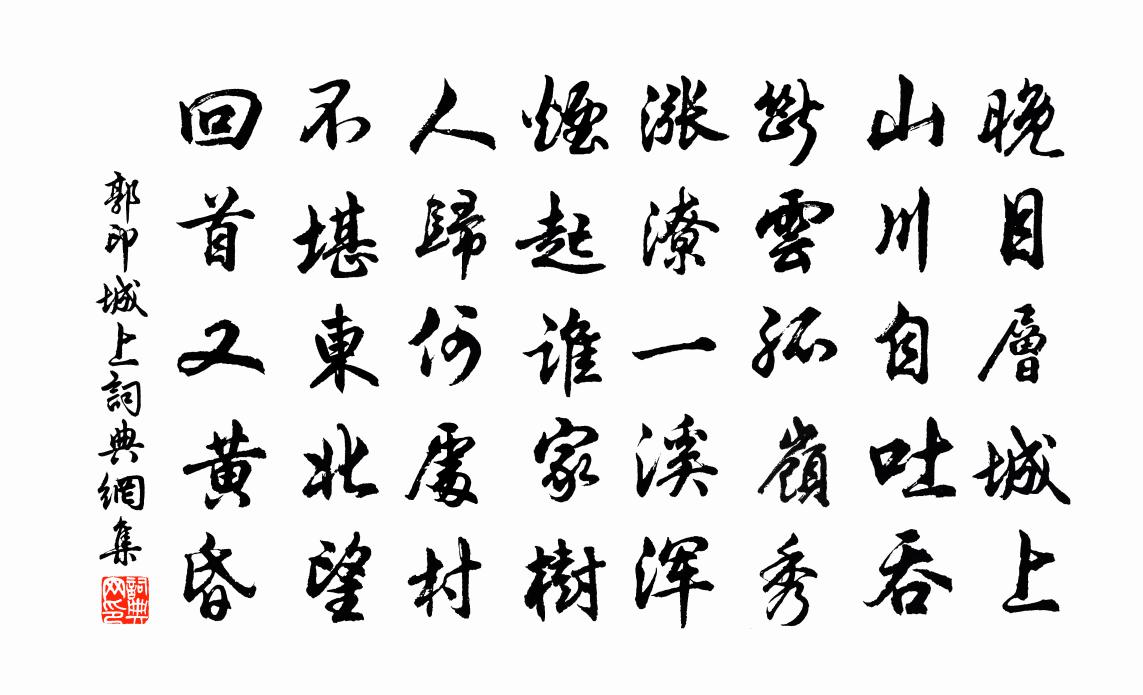 晚目層城上
山川自吐吞
斷雲孤嶺秀
漲潦一溪渾
煙起誰家樹
人歸何處村
不堪東北望
回首又黃昏
郭印城上詞典網集
詞典
网印